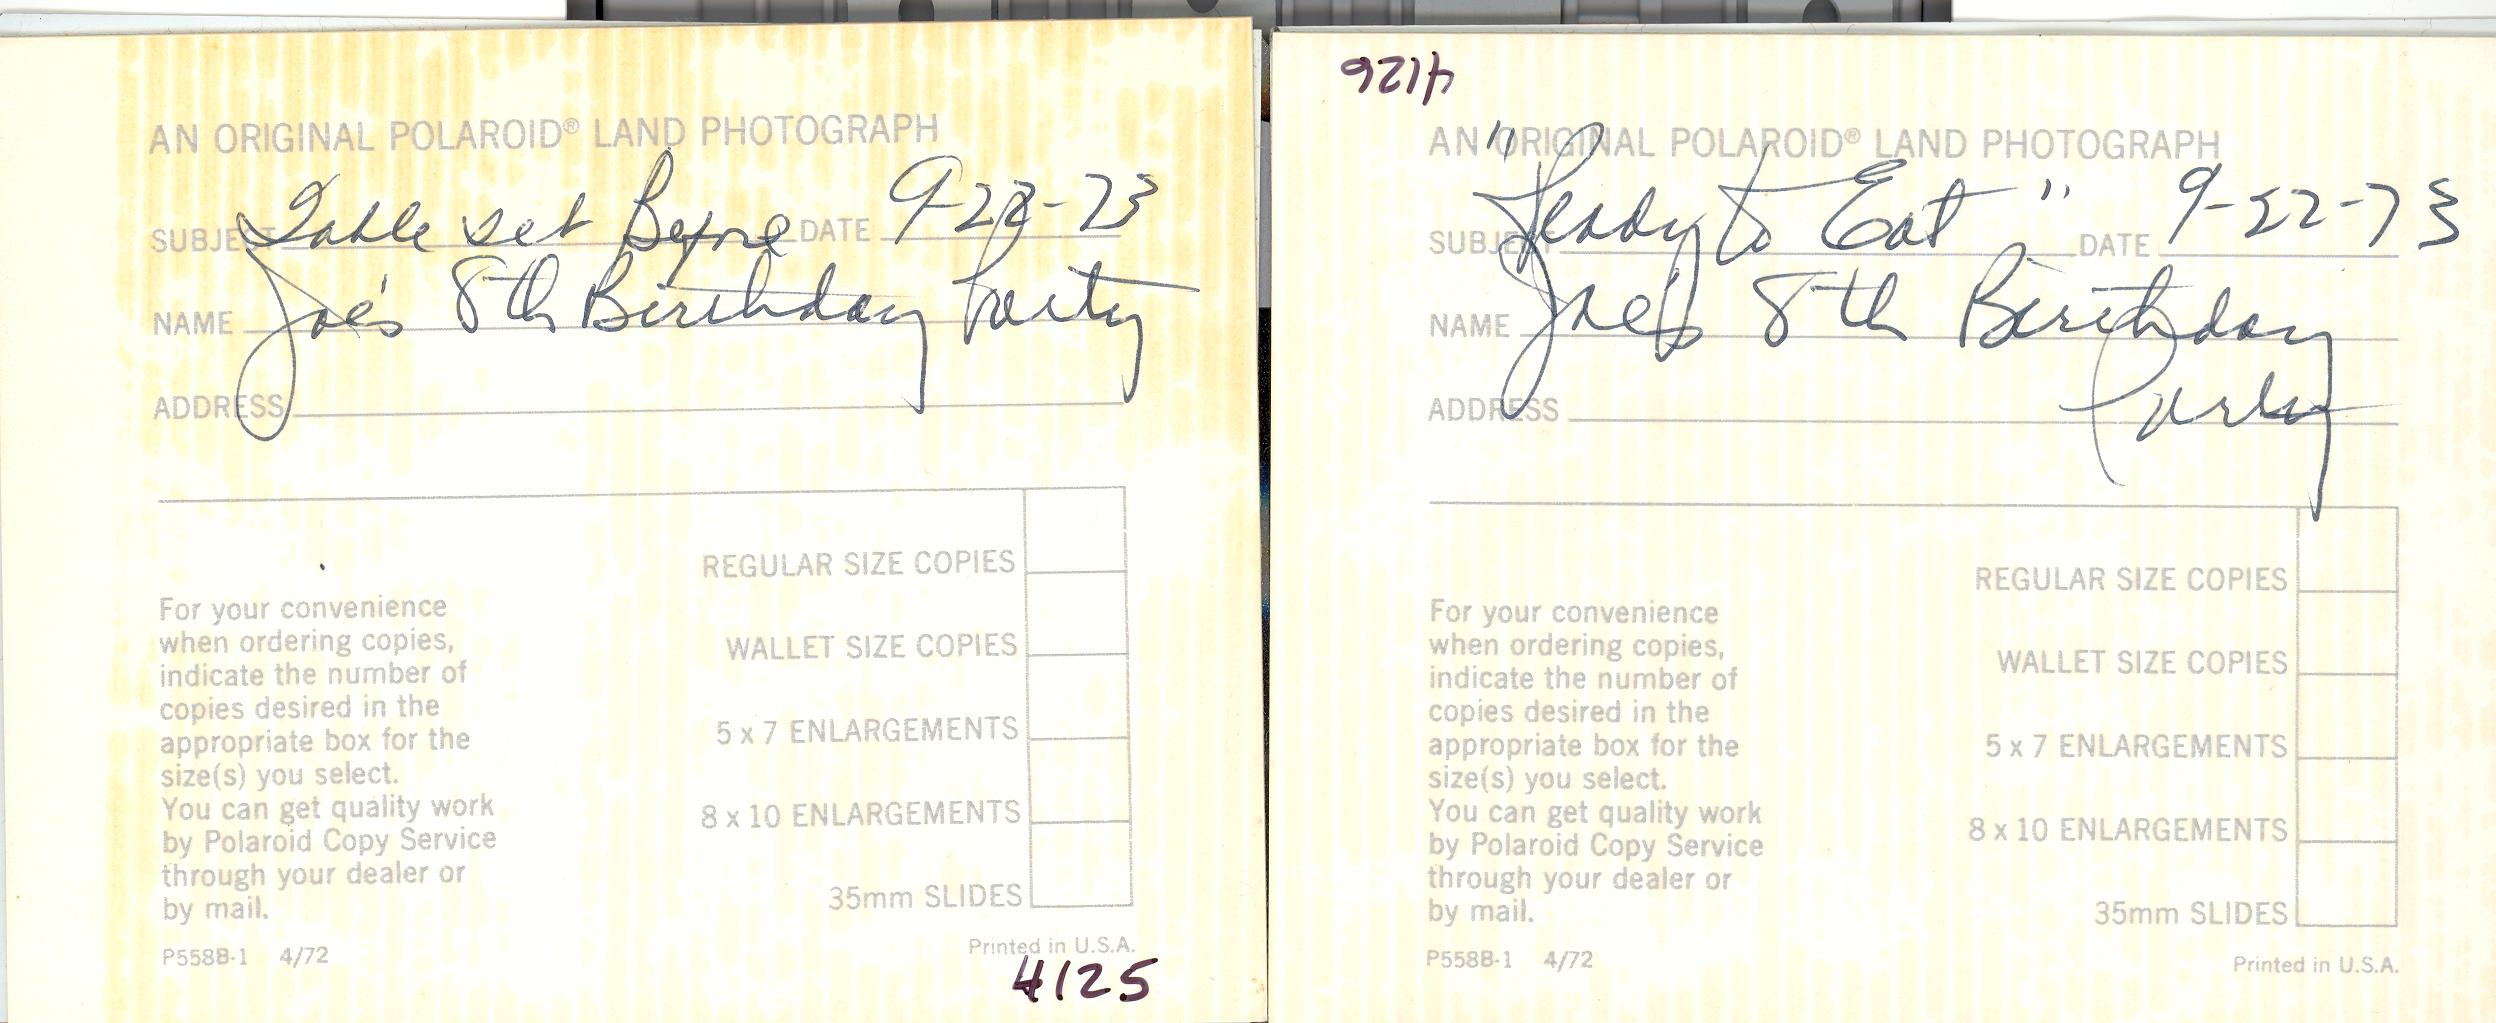 AN ORIGINAL POLAROID® LAND PHOTOGRAPH
SUBJECT Table set Before DATE 9-22-73
NAME Joe's 8th Birthday Party
ADDRESS
REGULAR SIZE COPIES
WALLET SIZE COPIES
5 x 7 ENLARGEMENTS
8 x 10 ENLARGEMENTS
35mm SLIDES
For your convenience
when ordering copies,
indicate the number of
copies desired in the
appropriate box for the
size(s) you select.
You can get quality work
by Polaroid Copy Service
through your dealer or
by mail.
P558B-1 4/72
Printed in U.S.A.
4125
4126
AN ORIGINAL POLAROID® LAND PHOTOGRAPH
SUBJECT "Ready to Eat" DATE 9-22-73
NAME Joe's 8th Birthday
ADDRESS Party
REGULAR SIZE COPIES
WALLET SIZE COPIES
5 x 7 ENLARGEMENTS
8 x 10 ENLARGEMENTS
35mm SLIDES
For your convenience
when ordering copies,
indicate the number of
copies desired in the
appropriate box for the
size(s) you select.
You can get quality work
by Polaroid Copy Service
through your dealer or
by mail.
P558B-1 4/72
Printed in U.S.A.